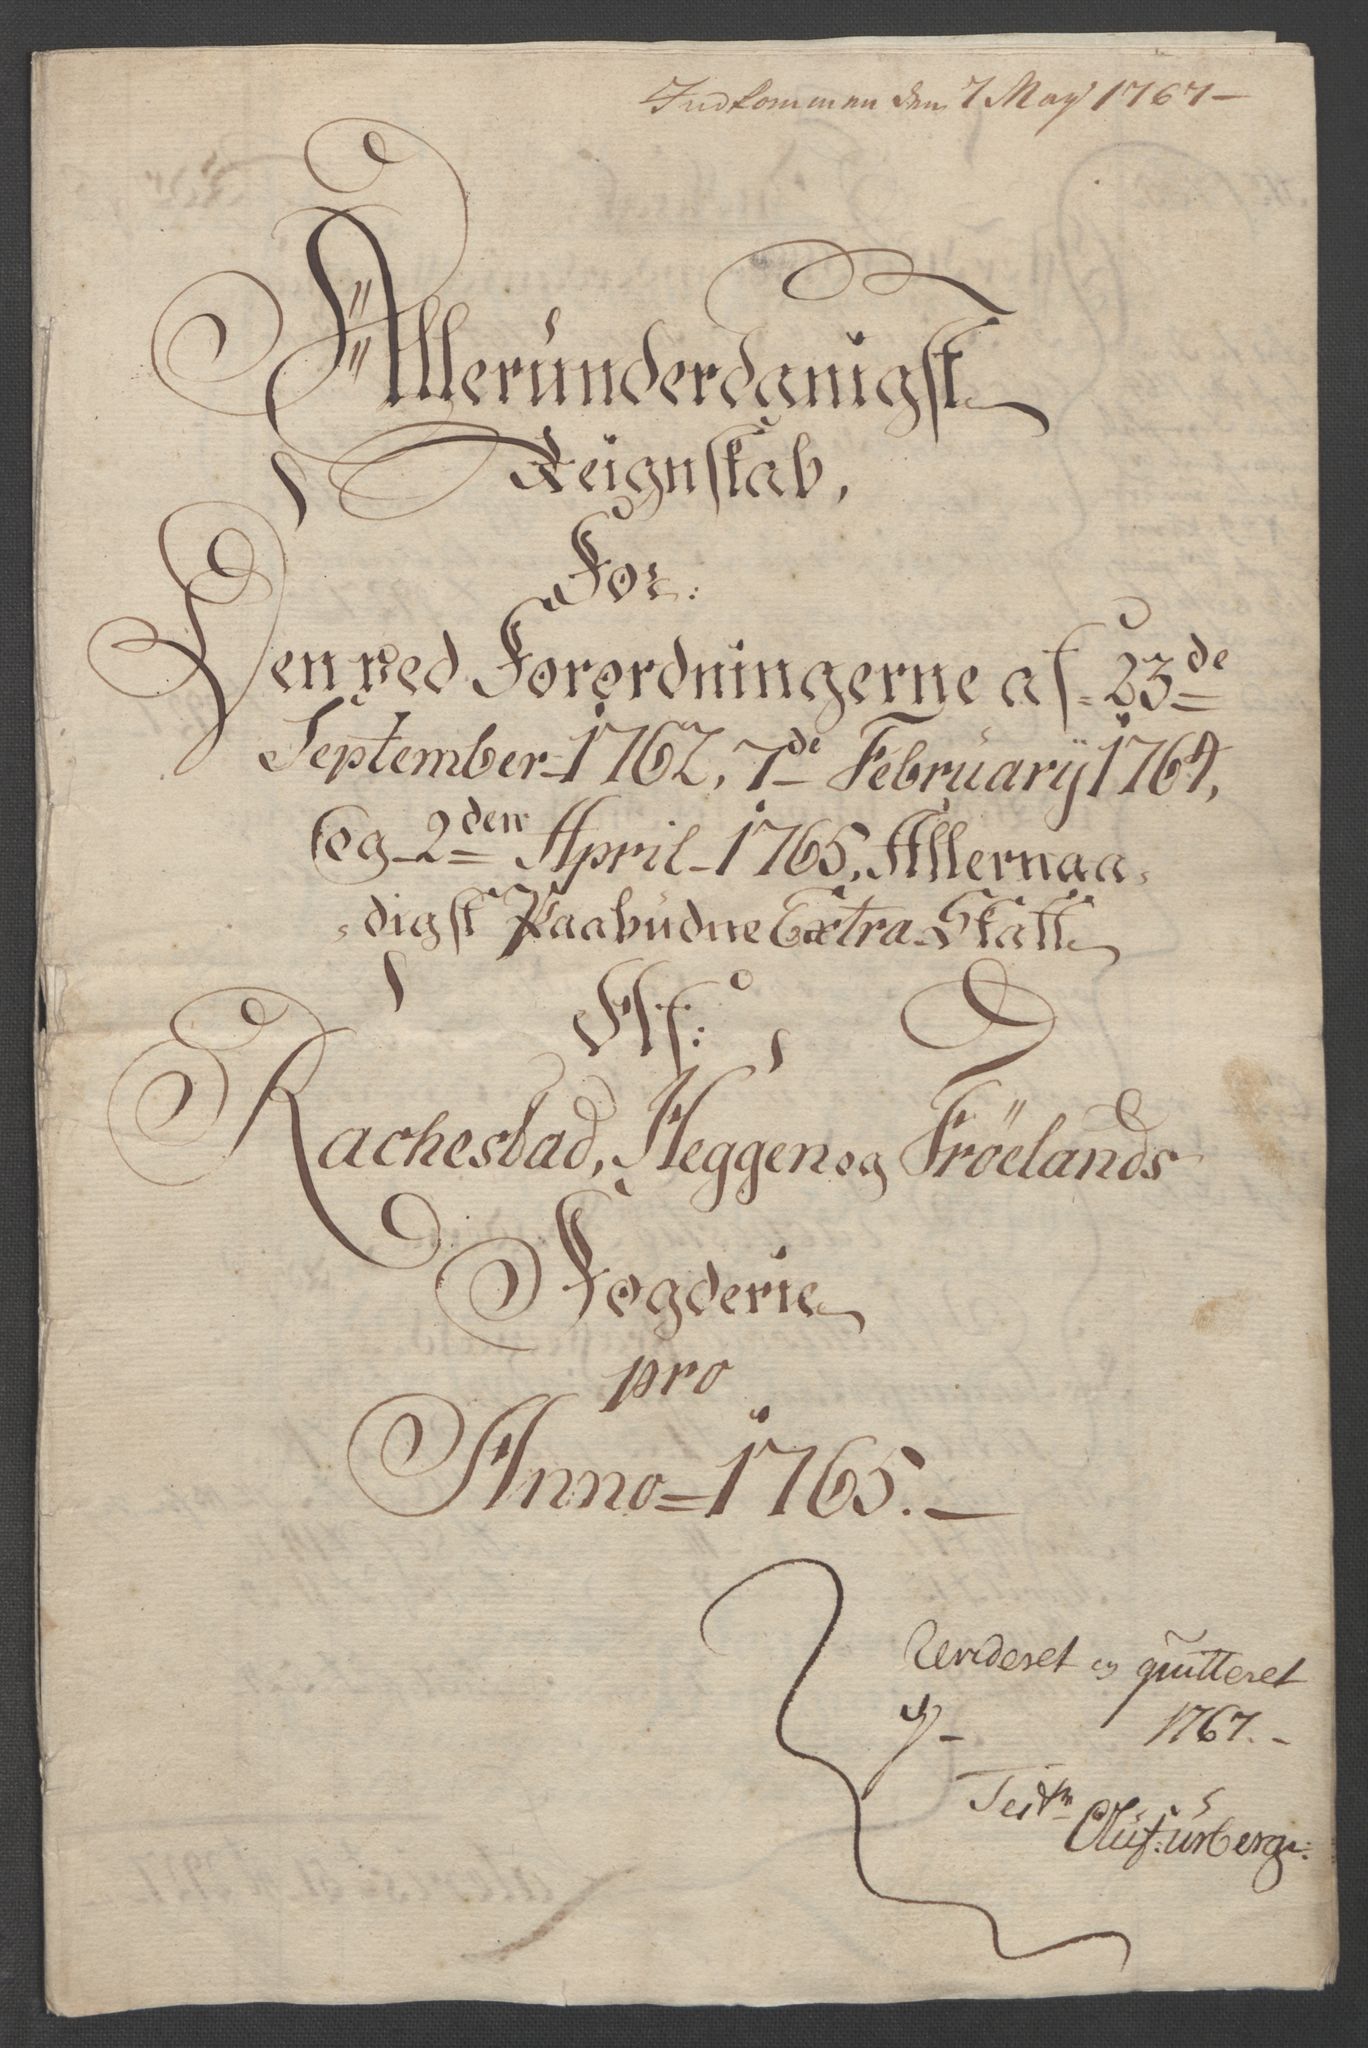 Indkommen den 7 May 1767 –
Alleründerdanigst
Reignskab,
For:
Den ved Forordningerne af 23de
September 1762, 7de Februarij 1764,
og 2den April 1765, Allernaa-
-digst Paabüdne Extra Skatt
Af:
Rachestad, Heggen og Fröelands
Fogderie
pro
Anno 1765. –
Revideret og quitteret
1767. –
Test
Oluf: